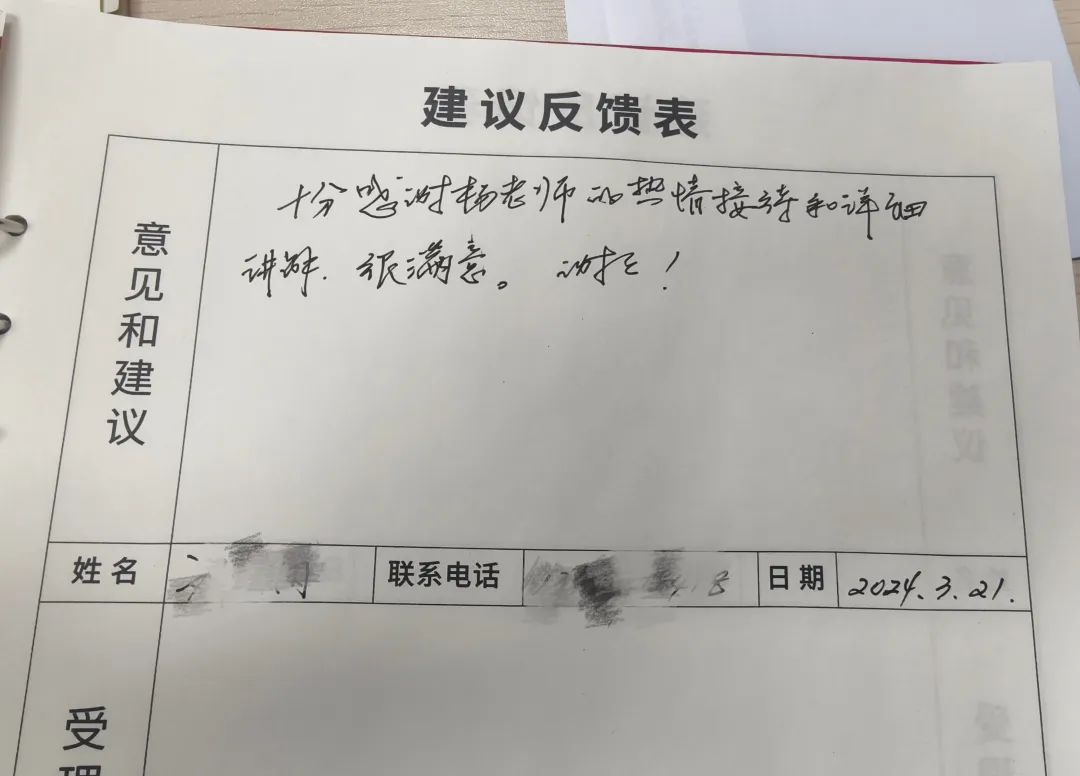 建议反馈表
意见和建议
十分感谢杨老师的热情接待和详细
讲解.很满意。 谢谢!
姓名
联系电话
8
日期
2024.3.21.
受理